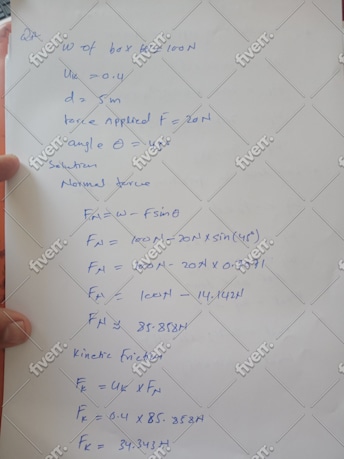 W of box = 100N
uk = 0.4
d = 5m
force Applied F = 20N
angle θ =
Solution
Normal force
FN = W - Fsinθ
FN = 100N - 20N x sin(45°)
FN = 100N - 20N x
FN = 100N - 14.142N
FN = 85.858N
Kinetic Friction
FK = UK x FN
FK = 0.4 x 85.858N
FK = 34.343N
fiverr.
fiverr.
fiverr.
fiverr.
fiverr.
fiverr.
fiverr.
fiverr.
fiverr.
fiverr.
fiverr.
fiverr.